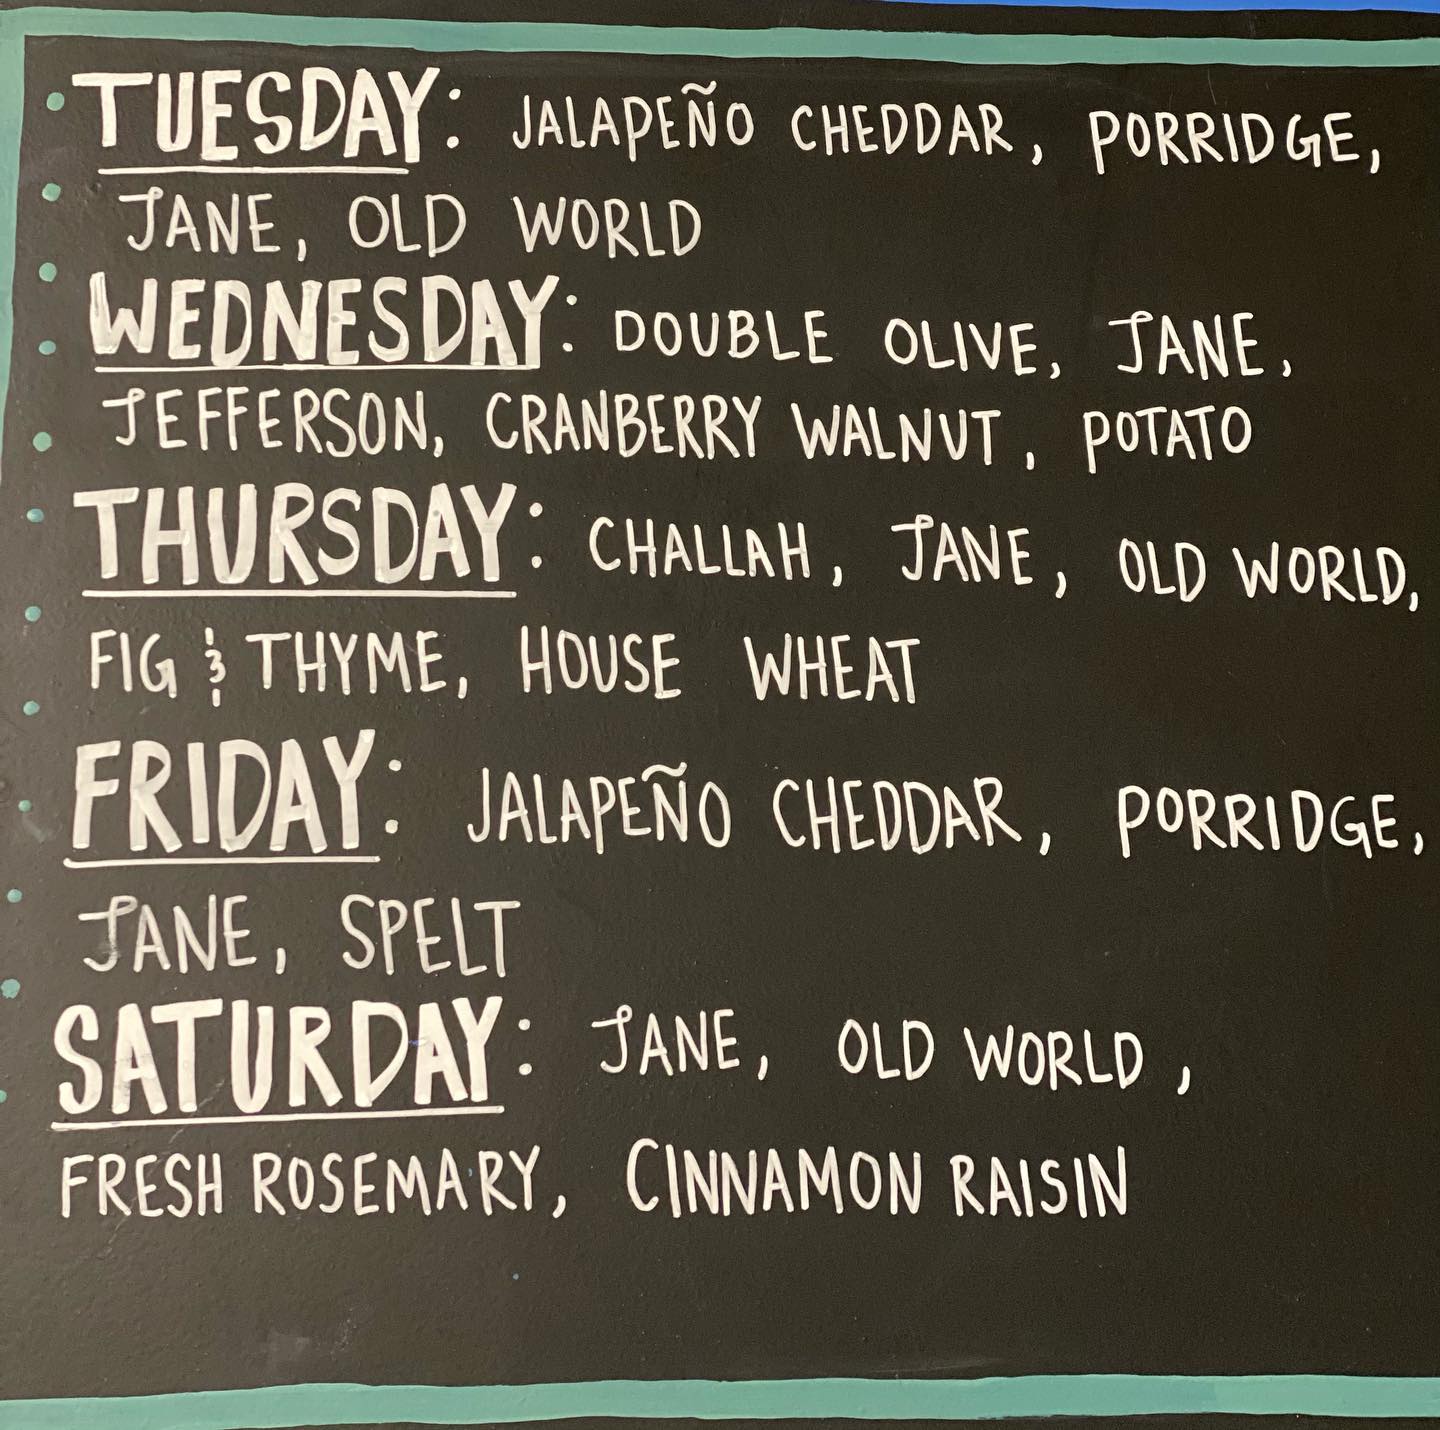 TUESDAY: JALAPEÑO CHEDDAR, PORRIDGE,
JANE, OLD WORLD
WEDNESDAY: DOUBLE OLIVE, JANE,
JEFFERSON, CRANBERRY WALNUT, POTATO
THURSDAY: CHALLAH, JANE, OLD WORLD,
FIG & THYME, HOUSE WHEAT
FRIDAY: JALAPEÑO CHEDDAR, PORRIDGE,
JANE, SPELT
SATURDAY: JANE, OLD WORLD,
FRESH ROSEMARY, CINNAMON RAISIN